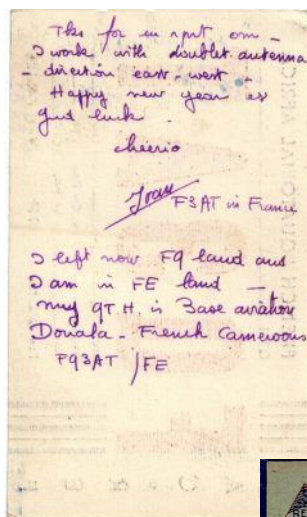 This for ur rprt om -
I work with doublet antenna
- direction east-west -
Happy new year es
gud luck.
cheerio
F3AT in France
I left now FQ land and
I am in FE land -
my QT.H. is Base aviation
Douala - French Cameroons
FQ3AT/FE